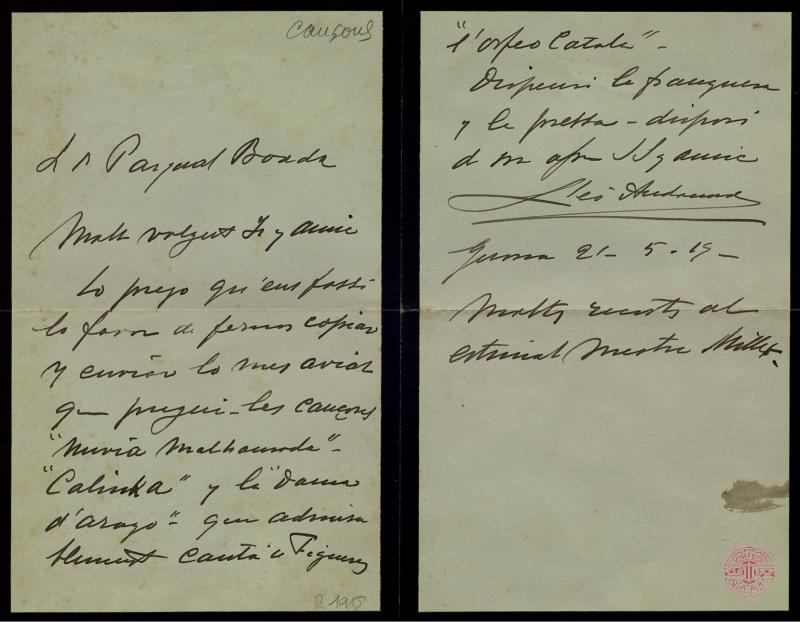 Cançons
Sr Pasqual Boada
Molt volgut Sr y amic
Lo prego qu'ens fassi
lo favor de fernos copiar
y enviar lo mes aviat
que pugui - les cançons
"Nuvia Malhaurada" -
"Calinka" y la "Dama
d'aragó" - que admira
blement cantà a Figueres
"l'orfeo Català" -
Dispensi la franquesa
y la pressa - disposi
d son afm SS y amic
Lleó Audouard
Girona 21 - 5 - 19 -
Molts recorts al
estimat Mestre Millet.
R 1915
ORFEO
CATALA